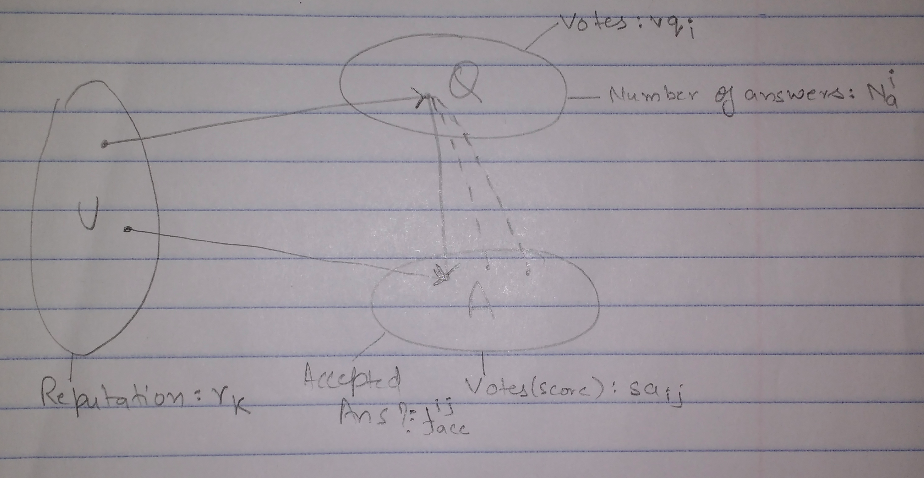 Votes: vqi
Q
Number of answers: Na^i
U
A
Reputation: rk
Accepted
Ans?: facc^ij
Votes(score): saij